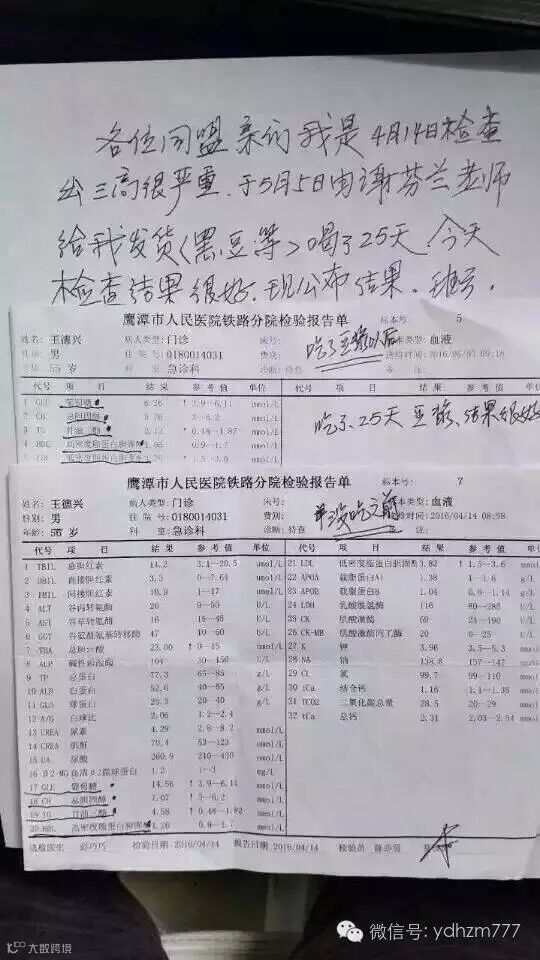 各位同盟亲们我是4月14日检查
出三高很严重.于5月5日由谢芬兰老师
给我发货<黑豆等>喝了25天.今天
检查结果很好.现公布结果.
鹰潭市人民医院铁路分院检验报告单 标本号: 5
姓名: 王德兴 病人类型: 门诊 床号: 标本类型: 血液
性别: 男 住院号: 0180014031 费别: 吃了豆浆以后
55 岁 科室: 急诊科 诊断: 待查
代号 项目 结果 参考值 单位 代号 项目 结果 参考值 单位
1 GLU 葡萄糖 6.26 ↑ 3.9-6.11 mmol/L
2 CH 总胆固醇 5.76 3-6.2 mmol/L
3 TG 甘油三酯 2.12 ↑ 0.48-1.82 mmol/L
4 HDL 高密度脂蛋白胆固醇 0.9-1.7 mmol/L
吃了25天豆浆.结果很好
鹰潭市人民医院铁路分院检验报告单 标本号: 7
姓名: 王德兴 病人类型: 门诊 床号: 标本类型: 血液
性别: 男 住院号: 0180014031 费别: 没吃之前 2016/04/14 08:58
年龄: 55 岁 科室: 急诊科 诊断: 待查
代号 项目 结果 参考值 单位 代号 项目 结果 参考值 单位
1 TBIL 总胆红素 14.2 3.1-20.5 umol/L 21 LDL 低密度脂蛋白胆固醇 3.82 ↑ 1.5-3.6 mmol/L
2 DBIL 直接胆红素 3.3 0-7.64 umol/L 22 APOA 载脂蛋白A1 1.38 1-1.6 g/L
3 IBIL 间接胆红素 10.9 umol/L 23 APOB 载脂蛋白B 1.04 0.6-1.14 g/L
4 ALT 谷丙转氨酶 20 9-50 U/L 24 LDH 乳酸脱氢酶 116 80-285 U/L
5 AST 谷草转氨酶 16 15-45 U/L 25 CK 肌酸激酶 59 24-190 U/L
6 GGT 谷氨酰氨基转移酶 47 10-60 U/L 26 CK-MB 肌酸激酶同工酶 20 0-25 U/L
7 TBA 总胆汁酸 23.00 ↑ 0-15 umol/L 27 K 钾 3.96 3.5-5.3 mmol/L
8 ALP 碱性磷酸酶 104 30-150 U/L 28 NA 钠 138.8 137-147 mmol/L
9 TP 总蛋白 77.3 65-85 g/L 29 CL 氯 99.7 99-110 mmol/L
10 ALB 白蛋白 52.0 40-55 g/L 30 iCa 结合钙 1.16 1.1-1.35 mmol/L
11 GLO 球蛋白 25.3 20-40 g/L 31 TCO2 二氧化碳总量 28.5 20-29 mmol/L
12 A/G 白球比 2.06 1.2-2.4 32 tCa 总钙 2.31 2.03-2.54 mmol/L
13 UREA 尿素 4.29 2.8-8.2 mmol/L
14 CREA 肌酐 70.4 53-123 umol/L
15 UA 尿酸 260.9 210-430 umol/L
16 β2-MG 血清β2微球蛋白 1.2 1-3 mg/L
17 GLU 葡萄糖 14.56 ↑ 3.9-6.11 mmol/L
18 CH 总胆固醇 7.07 ↑ 3-6.2 mmol/L
19 TG 甘油三酯 4.58 ↑ 0.48-1.82 mmol/L
20 HDL 高密度脂蛋白胆固醇 1.26 0.9-1.7 mmol/L
送检医生 彭巧巧 检验日期 2016/04/14 报告日期 2016/04/14 检验员
微信号: ydhzm777
大数跨境